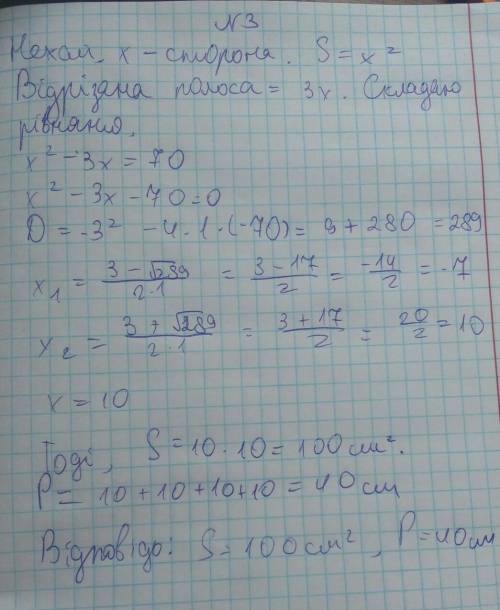 №3
Нехай x - сторона. S = x²
Відрізана полоса = 3x. Складаю
рівняння.
x² - 3x = 70
x² - 3x - 70 = 0
D = -3² - 4·1·(-70) = 9 + 280 = 289
x₁ = (3 - √289)/(2·1) = (3 - 17)/2 = -14/2 = -7
x₂ = (3 + √289)/(2·1) = (3 + 17)/2 = 20/2 = 10
x = 10
Тоді, S = 10·10 = 100 см².
P = 10 + 10 + 10 + 10 = 40 см
Відповідь: S = 100 см², P = 40 см